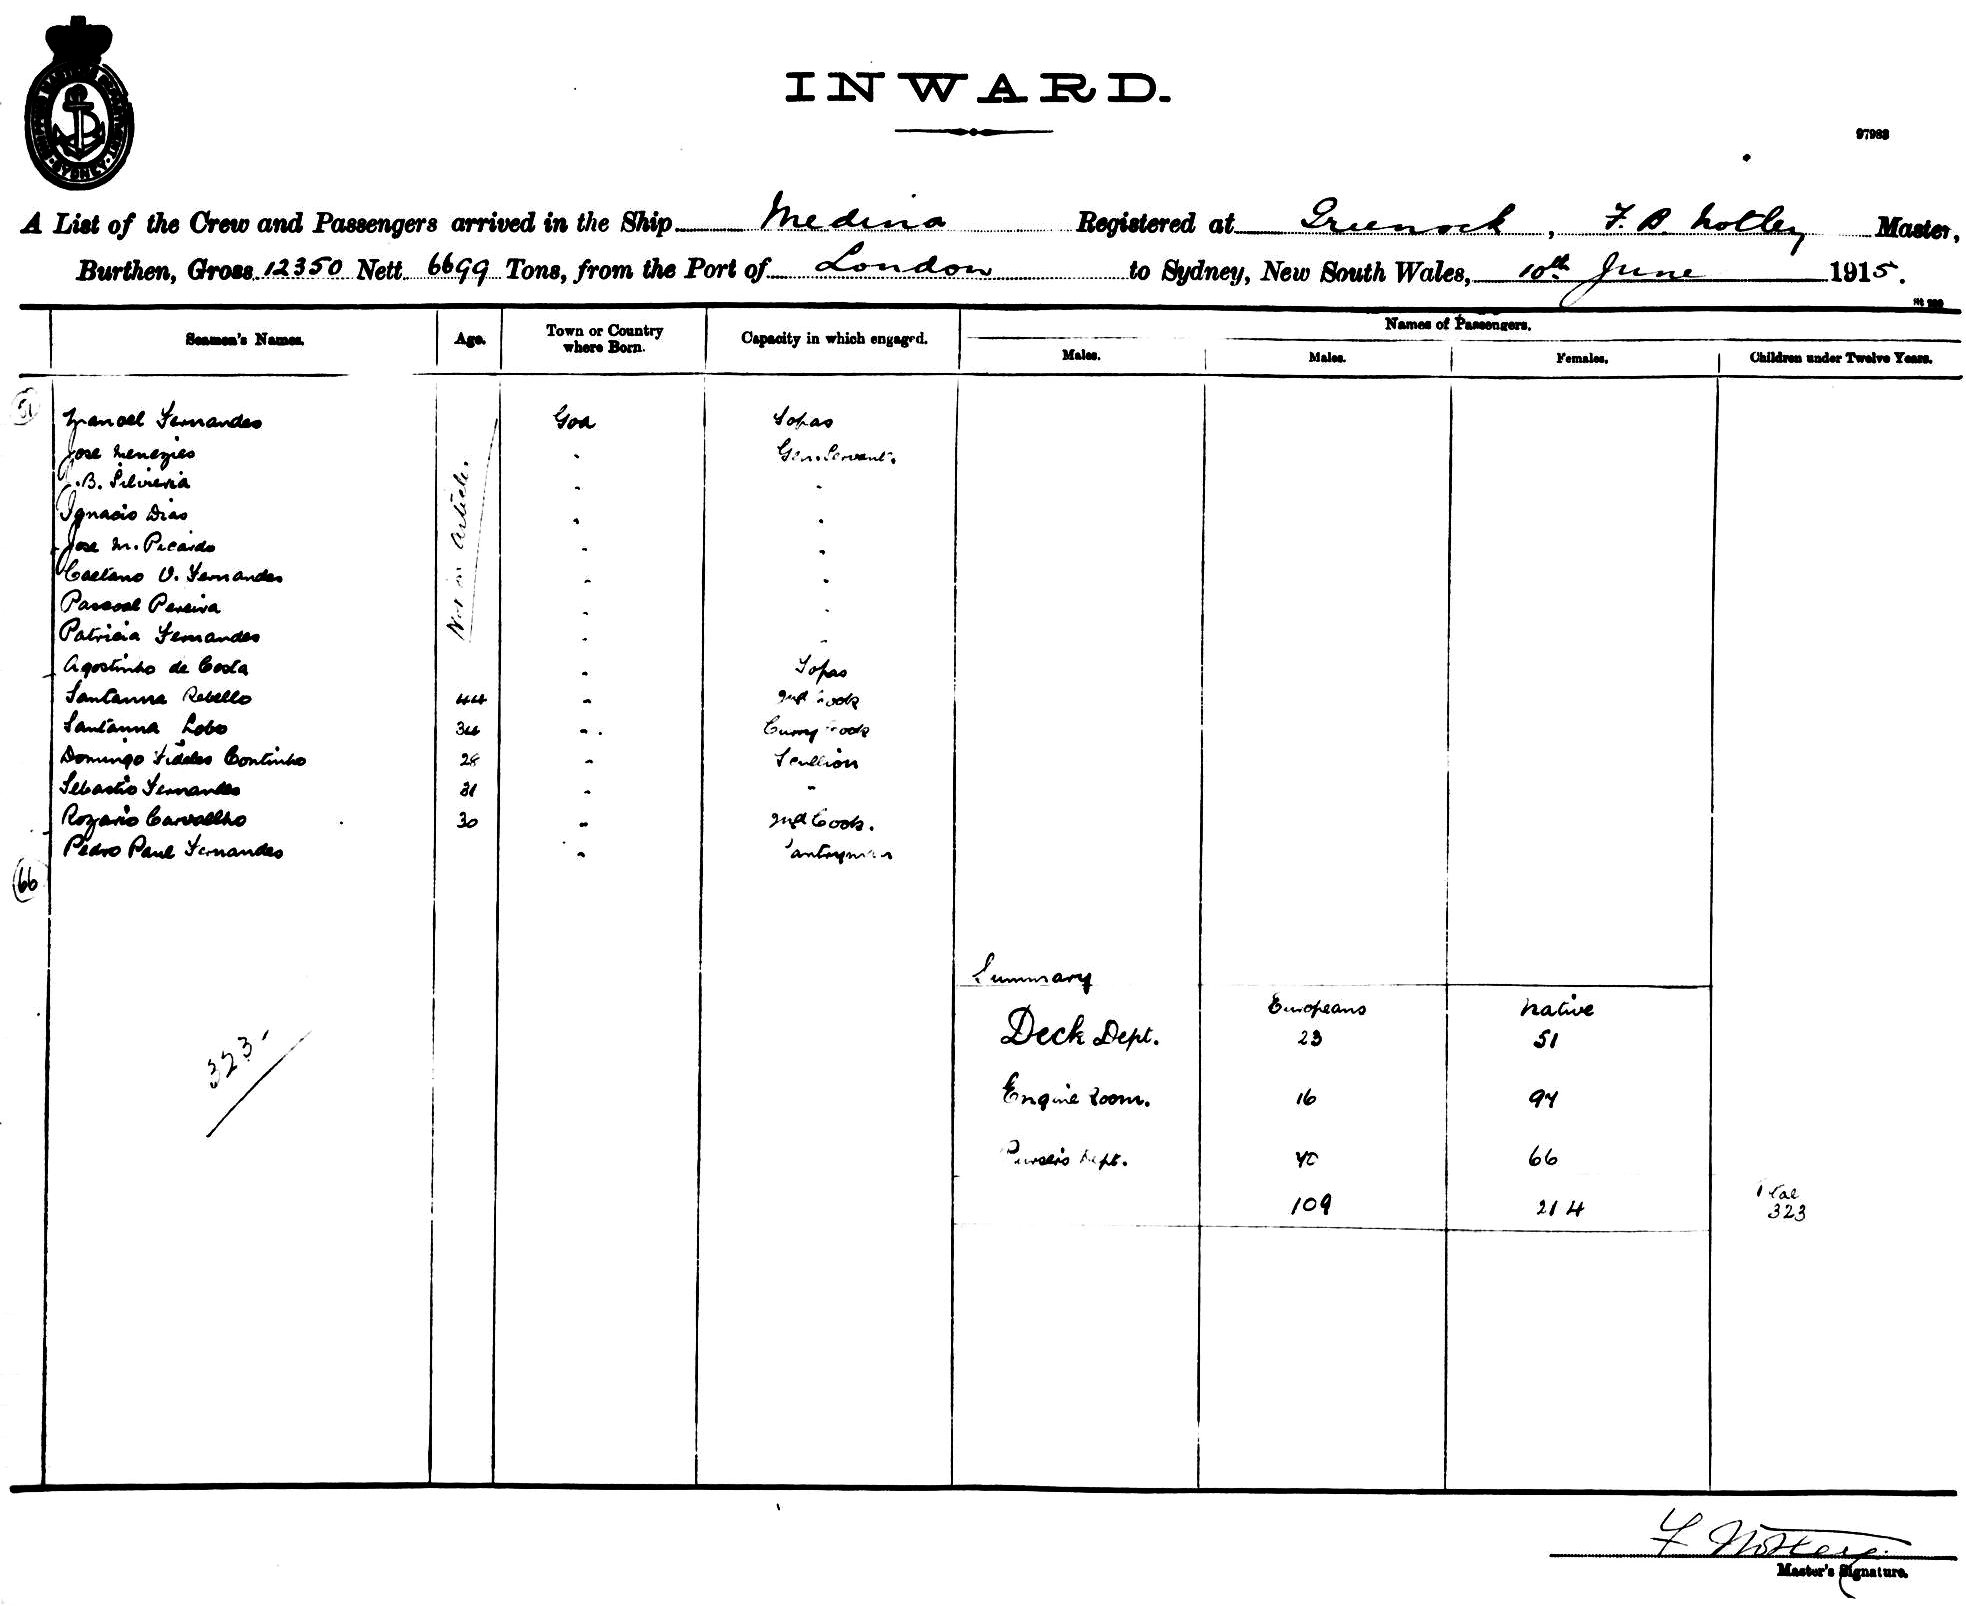 INWARD.
97983
A List of the Crew and Passengers arrived in the Ship Medina Registered at Greenock, F. B. Notley Master,
Burthen, Gross 12350 Nett 6699 Tons, from the Port of London to Sydney, New South Wales, 10th June 1915.
Names of Passengers.
Seamen's Names. Age. Town or Country where Born. Capacity in which engaged. Males. Males. Females. Children under Twelve Years.
51
Manoel Fernandes Goa Topas
Jose Menezies " Gen. Servant.
J.B. Silvieria " "
Ignacio Dias " "
Jose M. Picardo " "
Caetano V. Fernandes " "
Pascoal Pereira " "
Patricia Fernandes " "
Not on Article.
Agostinho de Costa " Topas
Santanna Rebello 44 " 2nd Cook
Santanna Lobo 34 " Curry Cook
Domingo Fideles Continho 28 " Scullion
Sebastio Fernandes 31 " "
Rozario Carvalho 30 " 2nd Cook.
Pedro Paul Fernandes " Pantryman
66
Summary
Europeans Native
Deck Dept. 23 51
Engine Room. 16 97
323-
Pursers Dept. 70 66
109 214 Total 323
F Notley
Master's Signature.